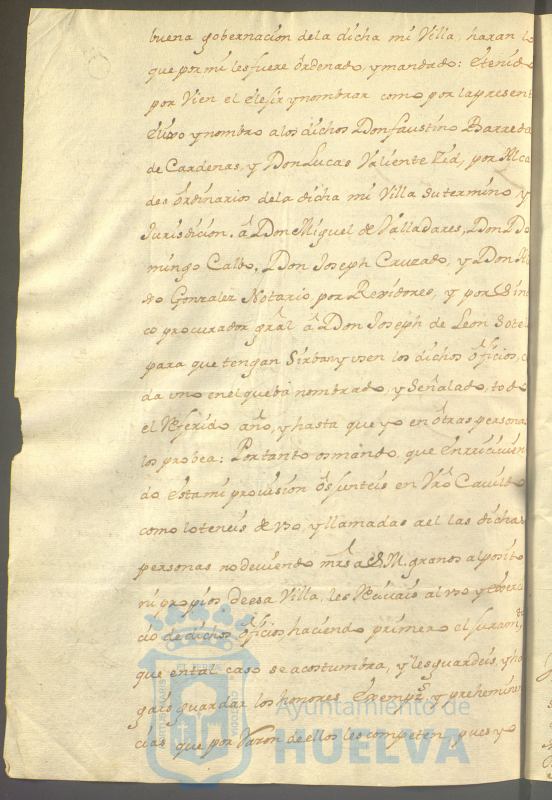 buena gobernacion dela dicha mi Villa, haran lo
que por mi les fuere ôrdenado, y mandado: Etenido
por Vien el elejir y nombrar como por la present
Elixo y nombro alos dichos Don faustino Barreda
de Cardenas, y Don Lucas Valiente Zid, por Alca
des ôrdinarios dela dicha mi Villa su termino y
Jurisdicion. â Don Miguel de Valladares, Don Do
mingo Calbo, Don Joseph Cruzado, y Don
do Gonzalez Notario por Rexidores, y por Sindi
co procurador grâl â Don Joseph de Leon Sotel
para que tengan Sirban y usen los dichos ôficios, ca
da vno en el que bá nombrado, y Señalado, todo
el Referido año, y hasta que yo en ôtras personas
los probea: Portanto os mando, que en reciuien
do esta mi provision ôs junteis en Vrô Cauildo
como lo teneis de vso, y llamadas a el las dichas
personas no deuiendo mrs a S.M. granos al posito
ni propios de esa Villa, les Reciuais al vso y exerci
cio de dichos ôficios haciendo primero el juramto
que en tal caso se acostumbra, y les guardeis, y ha
gais guardar los honores, Exempzs y preheminen
cias que por Razon de ellos les competen, pues yo
Ayuntamiento de
HUELVA